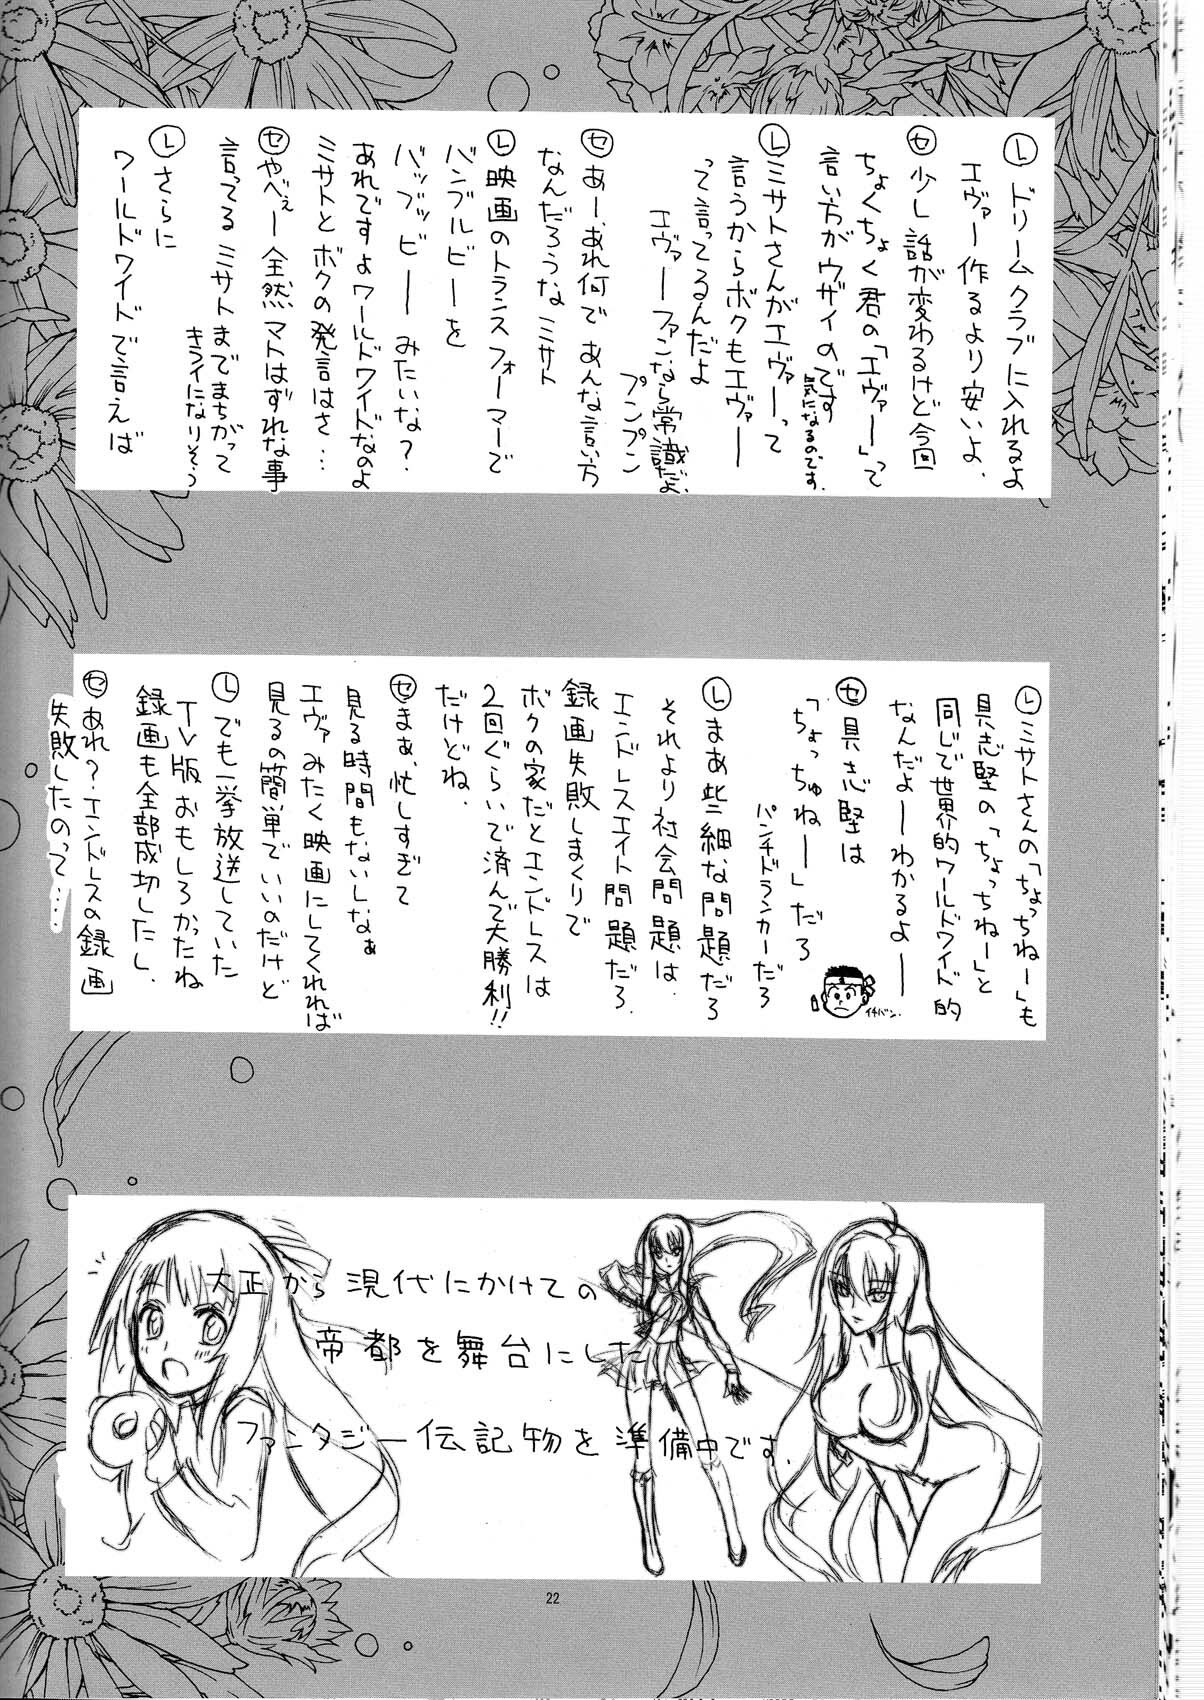 Ⓛドリームクラブに入れるよ
エヴァー作るより安いよ、
セ少し話が変わるけど今回
ちょくちょく君の「エヴァー」って
言い方がウザイのです
気になるのです、
Ⓛミサトさんがエヴァーって
言うからボクもエヴァー
って言ってるんだよ
エヴァーファンなら常識だよ、
プンプン
セあー、あれ何であんな言い方
なんだろうなミサト
Ⓛ映画のトランスフォーマーで
バンブルビーを
バッブッビーみたいな?
あれですよワールドワイドなのよ
ミサトとボクの発言はさ…
セやべぇー全然マトはずれな事
言ってるミサトまでまちがって
キライになりそう
Ⓛさらに
ワールドワイドで言えば
Ⓛミサトさんの「ちょっちねー」も
具志堅の「ちょっちねー」と
同じで世界的ワールドワイド的
なんだよーわかるよー
セ具志堅は
「ちょっちゅねー」だろ
パンチドランカーだろ
イチバン.
Ⓛまあ些細な問題だろ
それより社会問題は.
エンドレスエイト問題だろ.
録画失敗しまくりで
ボクの家だとエンドレスは
2回ぐらいで済んで大勝利!!
だけどね.
セまぁ、忙しすぎて
見る時間もないしなぁ
エヴァみたく映画にしてくれれば
見るの簡単でいいのだけど
Ⓛでも一挙放送していた
TV版おもしろかったね
録画も全部成功したし.
セあれ?エンドレスの録画
失敗したのって…
大正から現代にかけての
帝都を舞台にした
ファンタジー伝記物を準備中です.
22